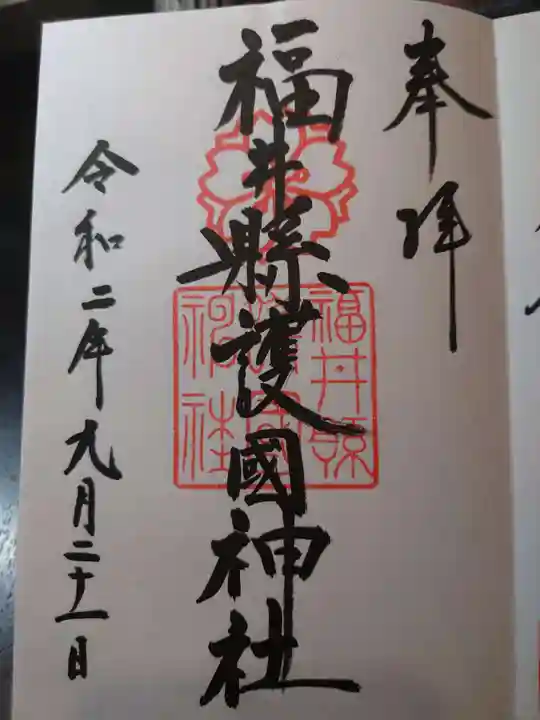 奉拝
福井縣護國神社
福井縣
護國
神社
令和二年九月二十一日